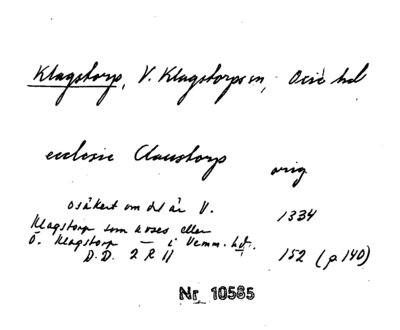 Klagstorp, V. Klagstorps sn, Oxie hd
ecclesie Claustorp orig
osäkert om det är V. 1334
Klagstorp som avses eller
Ö. Klagstorp — i Vemm. hd.
D.D. 2 R 11 152 (p 140)
Nr 10565